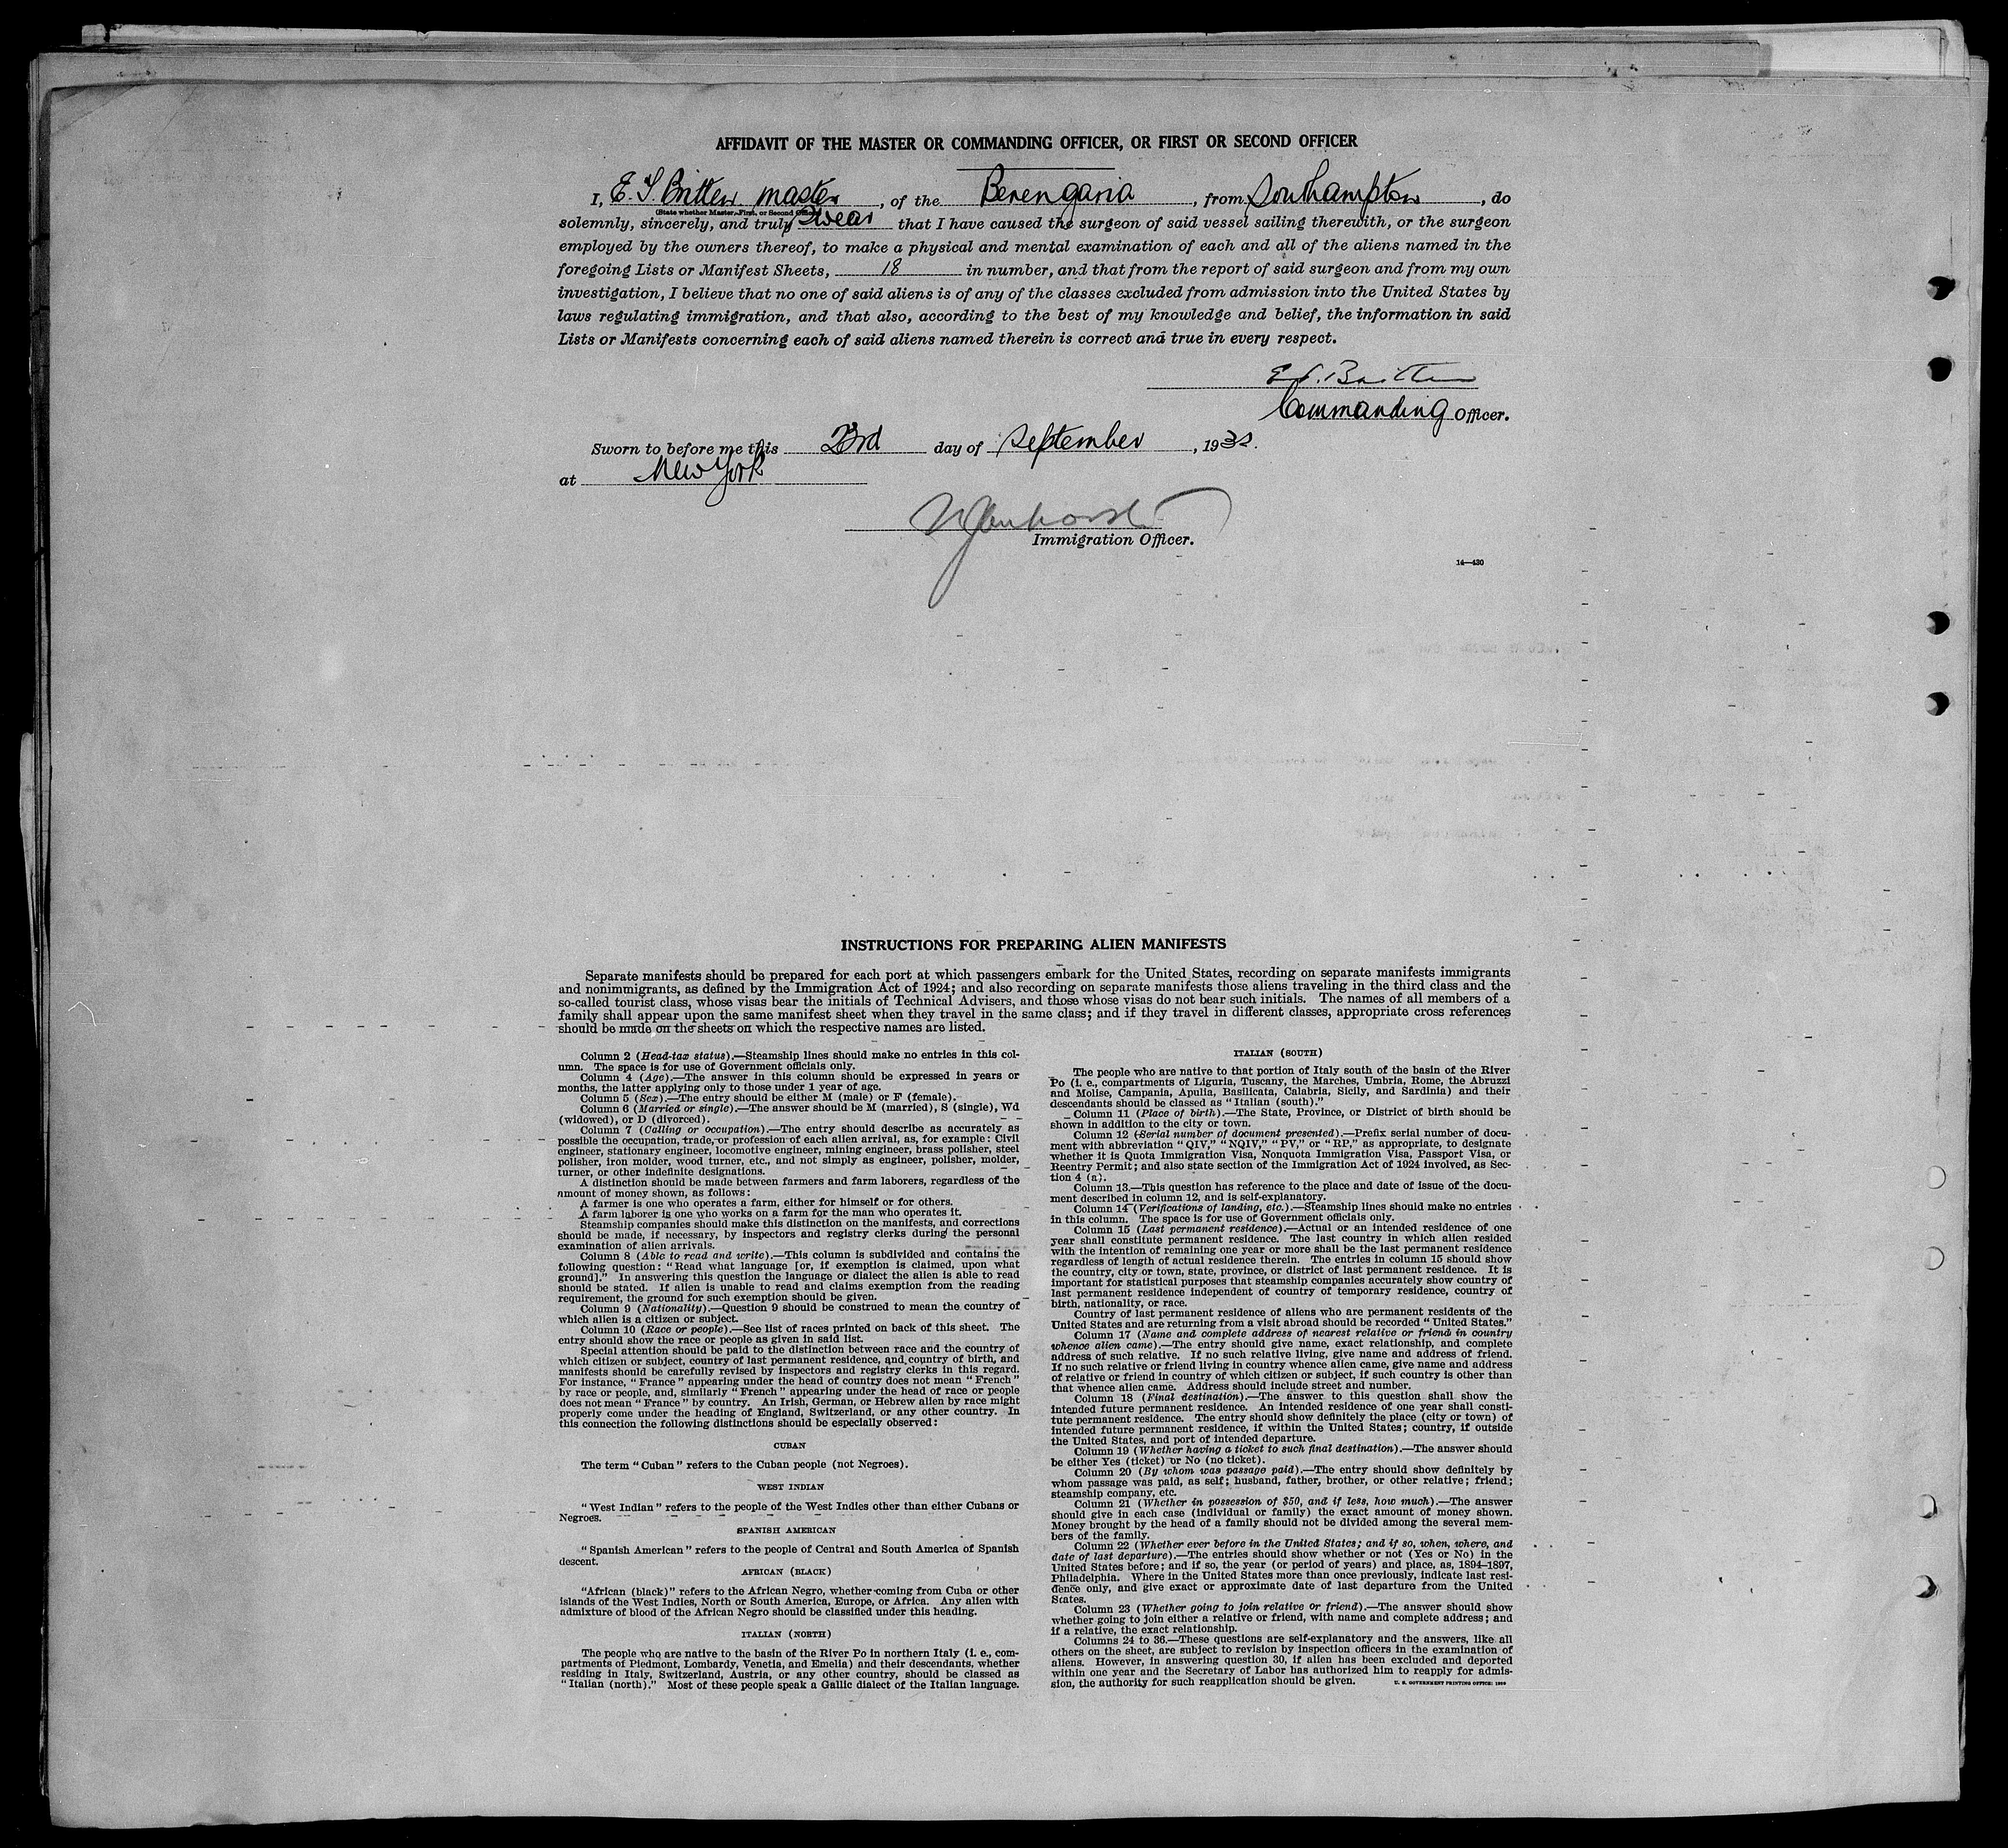 AFFIDAVIT OF THE MASTER OR COMMANDING OFFICER, OR FIRST OR SECOND OFFICER
I, E. S. Britten master, of the Berengaria, from Southampton, do
(State whether Master, First, or Second Officer)
solemnly, sincerely, and truly swear that I have caused the surgeon of said vessel sailing therewith, or the surgeon
employed by the owners thereof, to make a physical and mental examination of each and all of the aliens named in the
foregoing Lists or Manifest Sheets, 18 in number, and that from the report of said surgeon and from my own
investigation, I believe that no one of said aliens is of any of the classes excluded from admission into the United States by
laws regulating immigration, and that also, according to the best of my knowledge and belief, the information in said
Lists or Manifests concerning each of said aliens named therein is correct and true in every respect.
E. S. Britten
Commanding Officer.
Sworn to before me this 23rd day of September, 193
at New York
Immigration Officer.
14—430
INSTRUCTIONS FOR PREPARING ALIEN MANIFESTS
Separate manifests should be prepared for each port at which passengers embark for the United States, recording on separate manifests immigrants
and nonimmigrants, as defined by the Immigration Act of 1924; and also recording on separate manifests those aliens traveling in the third class and the
so-called tourist class, whose visas bear the initials of Technical Advisers, and those whose visas do not bear such initials. The names of all members of a
family shall appear upon the same manifest sheet when they travel in the same class; and if they travel in different classes, appropriate cross references
should be made on the sheets on which the respective names are listed.
Column 2 (Head-tax status).—Steamship lines should make no entries in this col-
umn. The space is for use of Government officials only.
Column 4 (Age).—The answer in this column should be expressed in years or
months, the latter applying only to those under 1 year of age.
Column 5 (Sex).—The entry should be either M (male) or F (female).
Column 6 (Married or single).—The answer should be M (married), S (single), Wd
(widowed), or D (divorced).
Column 7 (Calling or occupation).—The entry should describe as accurately as
possible the occupation, trade, or profession of each alien arrival, as, for example: Civil
engineer, stationary engineer, locomotive engineer, mining engineer, brass polisher, steel
polisher, iron molder, wood turner, etc., and not simply as engineer, polisher, molder,
turner, or other indefinite designations.
A distinction should be made between farmers and farm laborers, regardless of the
amount of money shown, as follows:
A farmer is one who operates a farm, either for himself or for others.
A farm laborer is one who works on a farm for the man who operates it.
Steamship companies should make this distinction on the manifests, and corrections
should be made, if necessary, by inspectors and registry clerks during the personal
examination of alien arrivals.
Column 8 (Able to read and write).—This column is subdivided and contains the
following question: "Read what language [or, if exemption is claimed, upon what
ground]." In answering this question the language or dialect the alien is able to read
should be stated. If alien is unable to read and claims exemption from the reading
requirement, the ground for such exemption should be given.
Column 9 (Nationality).—Question 9 should be construed to mean the country of
which alien is a citizen or subject.
Column 10 (Race or people).—See list of races printed on back of this sheet. The
entry should show the race or people as given in said list.
Special attention should be paid to the distinction between race and the country of
which citizen or subject, country of last permanent residence, and country of birth, and
manifests should be carefully revised by inspectors and registry clerks in this regard.
For instance, "France" appearing under the head of country does not mean "French"
by race or people, and, similarly "French" appearing under the head of race or people
does not mean "France" by country. An Irish, German, or Hebrew alien by race might
properly come under the heading of England, Switzerland, or any other country. In
this connection the following distinctions should be especially observed:
CUBAN
The term "Cuban" refers to the Cuban people (not Negroes).
WEST INDIAN
"West Indian" refers to the people of the West Indies other than either Cubans or
Negroes.
SPANISH AMERICAN
"Spanish American" refers to the people of Central and South America of Spanish
descent.
AFRICAN (BLACK)
"African (black)" refers to the African Negro, whether coming from Cuba or other
islands of the West Indies, North or South America, Europe, or Africa. Any alien with
admixture of blood of the African Negro should be classified under this heading.
ITALIAN (NORTH)
The people who are native to the basin of the River Po in northern Italy (i. e., com-
partments of Piedmont, Lombardy, Venetia, and Emelia) and their descendants, whether
residing in Italy, Switzerland, Austria, or any other country, should be classed as
"Italian (north)." Most of these people speak a Gallic dialect of the Italian language.
ITALIAN (SOUTH)
The people who are native to that portion of Italy south of the basin of the River
Po (i. e., compartments of Liguria, Tuscany, the Marches, Umbria, Rome, the Abruzzi
and Molise, Campania, Apulia, Basilicata, Calabria, Sicily, and Sardinia) and their
descendants should be classed as "Italian (south)."
Column 11 (Place of birth).—The State, Province, or District of birth should be
shown in addition to the city or town.
Column 12 (Serial number of document presented).—Prefix serial number of docu-
ment with abbreviation "QIV," "NQIV," "PV," or "RP," as appropriate, to designate
whether it is Quota Immigration Visa, Nonquota Immigration Visa, Passport Visa, or
Reentry Permit; and also state section of the Immigration Act of 1924 involved, as Sec-
tion 4 (a).
Column 13.—This question has reference to the place and date of issue of the docu-
ment described in column 12, and is self-explanatory.
Column 14 (Verifications of landing, etc.).—Steamship lines should make no entries
in this column. The space is for use of Government officials only.
Column 15 (Last permanent residence).—Actual or an intended residence of one
year shall constitute permanent residence. The last country in which alien resided
with the intention of remaining one year or more shall be the last permanent residence
regardless of length of actual residence therein. The entries in column 15 should show
the country, city or town, state, province, or district of last permanent residence. It is
important for statistical purposes that steamship companies accurately show country of
last permanent residence independent of country of temporary residence, country of
birth, nationality, or race.
Country of last permanent residence of aliens who are permanent residents of the
United States and are returning from a visit abroad should be recorded "United States."
Column 17 (Name and complete address of nearest relative or friend in country
whence alien came).—The entry should give name, exact relationship, and complete
address of such relative. If no such relative living, give name and address of friend.
If no such relative or friend living in country whence alien came, give name and address
of relative or friend in country of which citizen or subject, if such country is other than
that whence alien came. Address should include street and number.
Column 18 (Final destination).—The answer to this question shall show the
intended future permanent residence. An intended residence of one year shall consti-
tute permanent residence. The entry should show definitely the place (city or town) of
intended future permanent residence, if within the United States; country, if outside
the United States, and port of intended departure.
Column 19 (Whether having a ticket to such final destination).—The answer should
be either Yes (ticket) or No (no ticket).
Column 20 (By whom was passage paid).—The entry should show definitely by
whom passage was paid, as self; husband, father, brother, or other relative; friend;
steamship company, etc.
Column 21 (Whether in possession of $50, and if less, how much).—The answer
should give in each case (individual or family) the exact amount of money shown.
Money brought by the head of a family should not be divided among the several mem-
bers of the family.
Column 22 (Whether ever before in the United States; and if so, when, where, and
date of last departure).—The entries should show whether or not (Yes or No) in the
United States before; and if so, the year (or period of years) and place, as, 1894–1897,
Philadelphia. Where in the United States more than once previously, indicate last resi-
dence only, and give exact or approximate date of last departure from the United
States.
Column 23 (Whether going to join relative or friend).—The answer should show
whether going to join either a relative or friend, with name and complete address; and
if a relative, the exact relationship.
Columns 24 to 36.—These questions are self-explanatory and the answers, like all
others on the sheet, are subject to revision by inspection officers in the examination of
aliens. However, in answering question 30, if alien has been excluded and deported
within one year and the Secretary of Labor has authorized him to reapply for admis-
sion, the authority for such reapplication should be given.
U. S. GOVERNMENT PRINTING OFFICE: